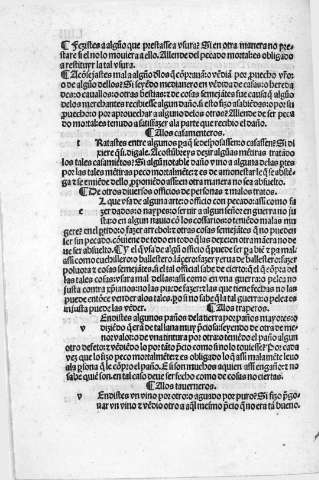 ¶ Feziestes a algũo que prestasse a vsura? Si en otra manera no pre-
stare si el no lo mouiera a ello. Allende del pecado mortal es obligado
a restituyr la tal vsura.
¶ Acõsejastes mal a algũo dlos q̃ cõprauã: o vẽdiã por ꝓuecho vr̃o:
o de algũo dellos? Si seyẽdo medianero en vẽdida de casas: o hereda-
des: o cauallos: o otras bestias: z de cosas semejãtes fue causa q̃ algũo
delos mercbantes recibiesse algun daño. si esto fizo a sabiẽdas: o por su
ꝓuecho: o por aprouechar a alguno delos otros: Allende de ser peca
do mortal es tenudo a satisfazer ala parte que recibio el daño.
¶ A los casamenteros.
t Ratastes entre algunos pa q̃ se desposassen: o casassen? Si di
xiere q̃ si. digale.
los tales casamiẽtos? Si algũ notable daño vino a alguna delas
por las tales mẽtiras peco mortalmẽte: z es de amonestar le q̃ se abstẽ-
ga z se emiẽde dello. prometiẽdo assi en otra manera no sea absuelto.
¶ De otros diuersos officios de personas z malos tratos.
L que vsa de alguna arte: o officio con pecado: assi como fa
zer dados: o naypes: o seruir a algun señor en guerra no ju
sta: o en algun nauio: o los cossarios: o tenẽdo malas mu-
geres enel ꝑtido: o fazer arrebol: z otras cosas semejãtes q̃ no pueden
ser sin pecado. cõuiene de todo en todo q̃ las dexe: en otra manera no de
ue ser absuelto. ¶ Y el q̃ vsa de algũ officio q̃ puede ser ꝑa biẽ z ꝑa mal:
assi como cuchillero: o ballestero. lãcero: fazer yerua de ballestero: fazer
poluora z cosas semejãtes. si el tal official sabe de cierto: q̃ el q̃ cõpra del
las tales cosas: vsara mal dellas: assi como en vna guerra: o pelea no
justa contra xp̃ianos: no las puede fazer: z las que tiene fechas no las
puede entõce vẽder alos tales. po si no sabe q̃ la tal guerra: o pelea es
injusta puede las vẽder.
¶ A los traperos.
v Endistes algunos paños dela tierra por paños mayores: o
diziẽdo q̃ era de tal lana muy p̃ciosa: seyendo de otra de me-
nor valor: o de vna tintura por otra: o teniẽdo el paño algun
otro defeto: z vẽdiẽdo lo por tãto p̃cio como si no lo touiesse? Por cada
vez que lo fizo peco mortalmẽte: z es obligado lo q̃ assi malamẽte leuo
ala ꝑsona q̃ le cõpro el paño. E si son muchos aquien assi engañe: z no
sabe quiẽ son. en tal caso deue ser fecho como de cosas no ciertas.
¶ A los tauerneros.
v Endistes vn vino por otro: o aguado por puro? Si fizo ꝓgo-
nar vn vino z vẽdio otro a aq̃l mesmo p̃cio q̃ no era tã bueno.